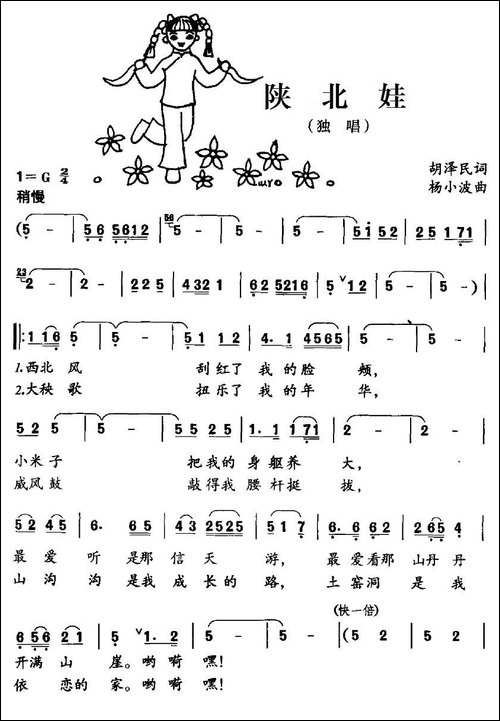 陕北娃
（独唱）
1=G 2/4
胡泽民词
稍慢
杨小波曲
(5 - | 5 6 5612 | 56 5 - | 5 - | 5 - | 5 - | 5152 | 25 171 |
23 2 - | 2 - | 225 | 4321 | 62 5216 | 5 ∨12 | 5 - | 5 - )|
‖: 116 5 | 5 - | 51 12 | 4. 1 | 4565 | 5 - | 5 - |
1.西北风 刮红了我的脸颊，
2.大秧歌 扭乐了我的年华，
525 | 5 - | 5 - | 552 | 1. 1 171 | 2 - | 2 - |
小米子 把我的身躯养大，
威风鼓 敲得我腰杆挺拔，
52 45 | 6. 65 | 43 2525 | 517 | 6. 662 | 265 4 |
最爱听是那信天游，最爱看那山丹丹
山沟沟是我成长的路，土窑洞是我
(快一倍)
656 21 | 5 ∨1. 2 | 5 - | 5 - | (52 | 5 2 |
开满山崖。哟嗬嘿！
依恋的家。哟嗬嘿！